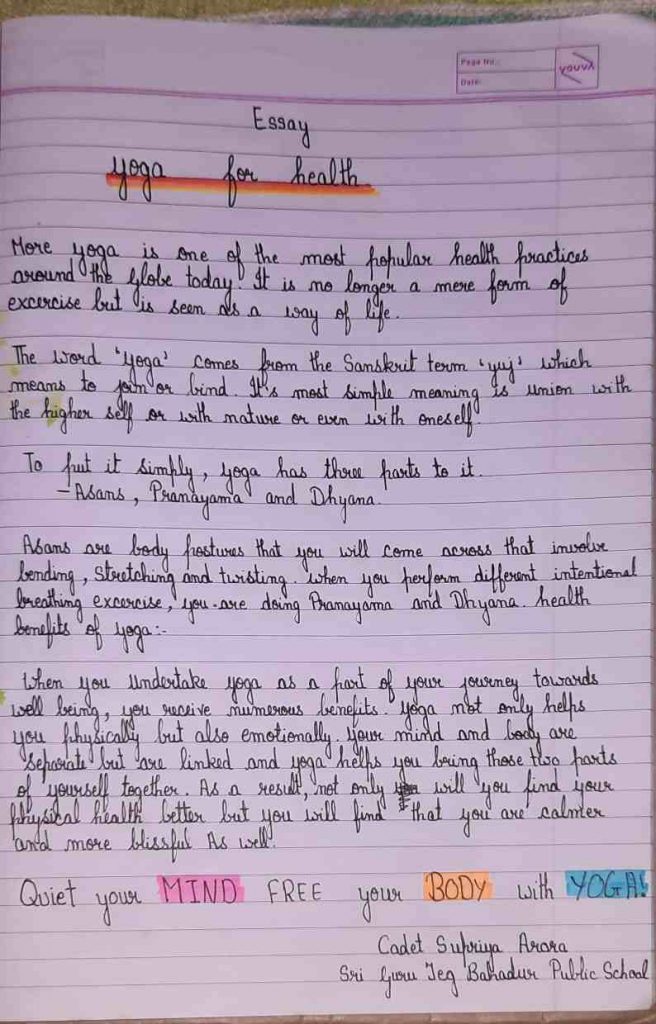 Page No.:
Date:
YOUVA
Essay
yoga for health
More yoga is one of the most popular health practices
around the globe today. It is no longer a mere form of
excercise but is seen as a way of life.
The word 'yoga' comes from the Sanskrit term 'yuj' which
means to join or bind. It's most simple meaning is union with
the higher self or with nature or even with oneself.
To put it simply, yoga has three parts to it.
- Asans, Pranayama and Dhyana.
Asans are body postures that you will come across that involve
bending, stretching and twisting. when you perform different intentional
breathing excercise, you are doing Pranayama and Dhyana. health
benefits of yoga:-
When you undertake yoga as a part of your journey towards
well being, you receive numerous benefits. yoga not only helps
you physically but also emotionally. your mind and body are
separate but are linked and yoga helps you bring those two parts
of yourself together. As a result, not only will you find your
physical health better but you will find that you are calmer
and more blissful As well.
Quiet your MIND FREE your BODY with YOGA!
Cadet Supriya Arora
Sri Guru Teg Bahadur Public School